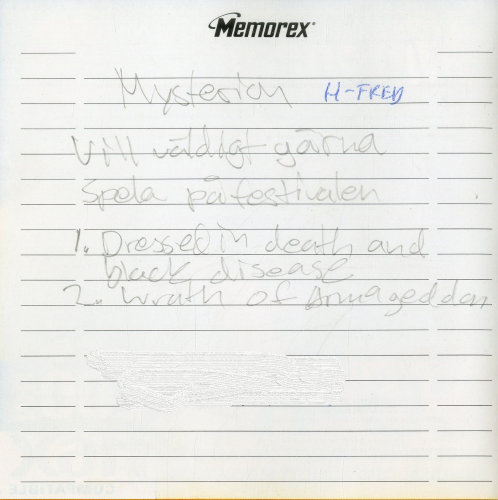 Memorex
Mysterion H-FRED
Vill väldigt gärna
Spela på festivalen
1. Dressed in death and
black disease
2. Wrath of Armageddon
COMPATIBLE